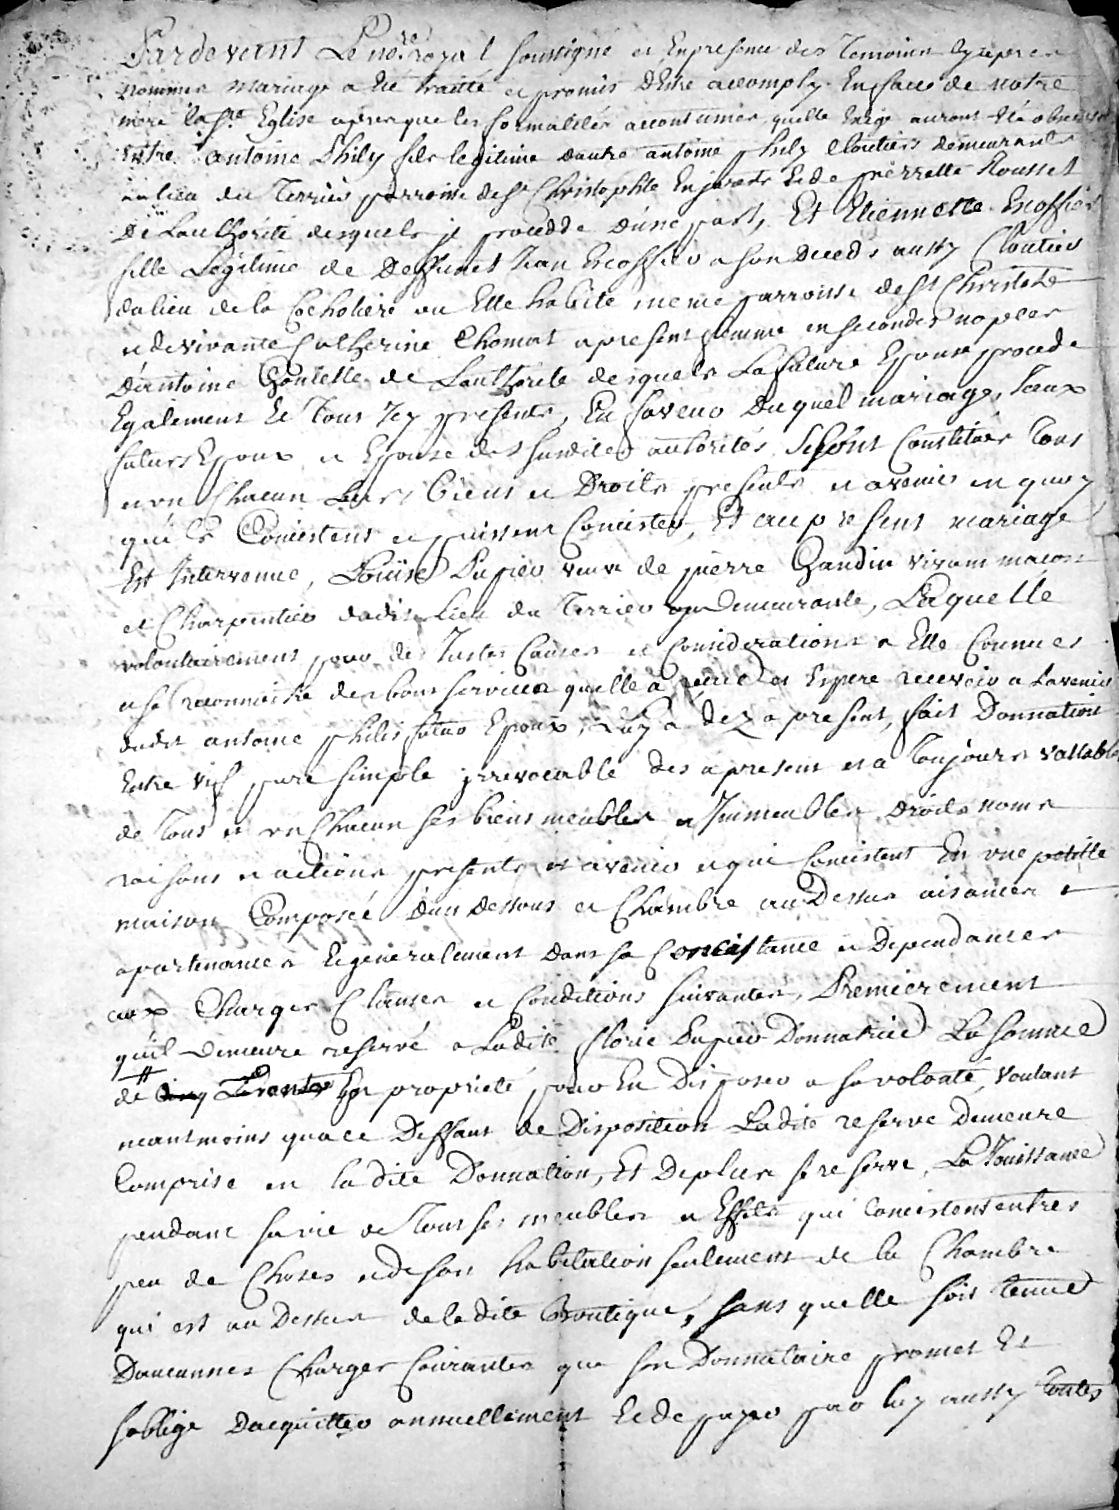 Pardevant Le no.re royal soussigné et En presence des Temoins cy apres
nommés mariage a Eté traitté et promis d'Etre accomply En face de notre
mere la s.te Eglise apres que les formalités accoutumés quelle Exige auront Eté observés
Entre antoine Phily fils legitime dautre antoine phily Cloutier demeurant
au lieu du Terrier parroisse de St Christophle En jarests Et de pierrette Rousset
De Lauthorité desquels il procedde d'une part, Et Etiennette Escoffier
fille Legitime de Deffunct Jean Escoffier a son deceds aussy Cloutier
du lieu de la Cocholiere ou Elle habite meme parroisse de St Christople
et de vivante Catherine Chomat a present femme en secondes nopces
d'antoine Gontelle de Lauthorité desquels La future Epouse procede
Egalement Et Tous Icy presents, En faveur Duquel mariage, Iceux
futurs Epoux et Epouse des susdites authorités se sont Constitués Tous
et un Chacun Leurs biens et Droits presents et avenir en quoy
qu'ils Concistent et puissent Concister, Et au present mariage
Est Intervenue, Louise Dupieu veuve de pierre Gaudin vivant macon
et Charpentier dudit lieu du Terrier y Demeurante, Laquelle
volontairement pour de Justes Causes et Considerations a Elle Connues
et se reconnoitre des bons services quelle a recue et Espere recevoir a Lavenir
dudit antoine philis futur Epoux, Luy a dez a present, fait Donnation
Entre vif pure simple irrevocable des a present et a Toujours vallable
de Tous et un Chacun ses biens meubles et Immeubles Droits noms
raisons et actions presents et avenir et qui Concistent En une petitte
maison Composée d'un dessous et Chambre au Dessus aisances et
apartenances Et generalement dans sa Concistance et Dependances
aux Charges Clauses et Conditions suivantes, Premierement
qu'il Demeure reservé a Ladite florie Dupieu Donnatrice La somme
de Cinq Livres En proprieté pour En Disposer a sa volonté, Voulant
neantmoins qu'a ce Deffaut de Disposition Ladite reserve Demeure
Comprise en la dite Donnation, Et Deplus se reserve, La Jouissance
pendant sa vie de Tous ses meubles et Effets qui Concistent en tres
peu de Choses et de son habitation seulement de la Chambre
qui est au Dessus de la dite Boutique, sans quelle soit tenue
Daucunnes Charges Courantes que son Donnataire promet Et
soblige Dacquitter annuellement Et de payer par luy aussy toutes